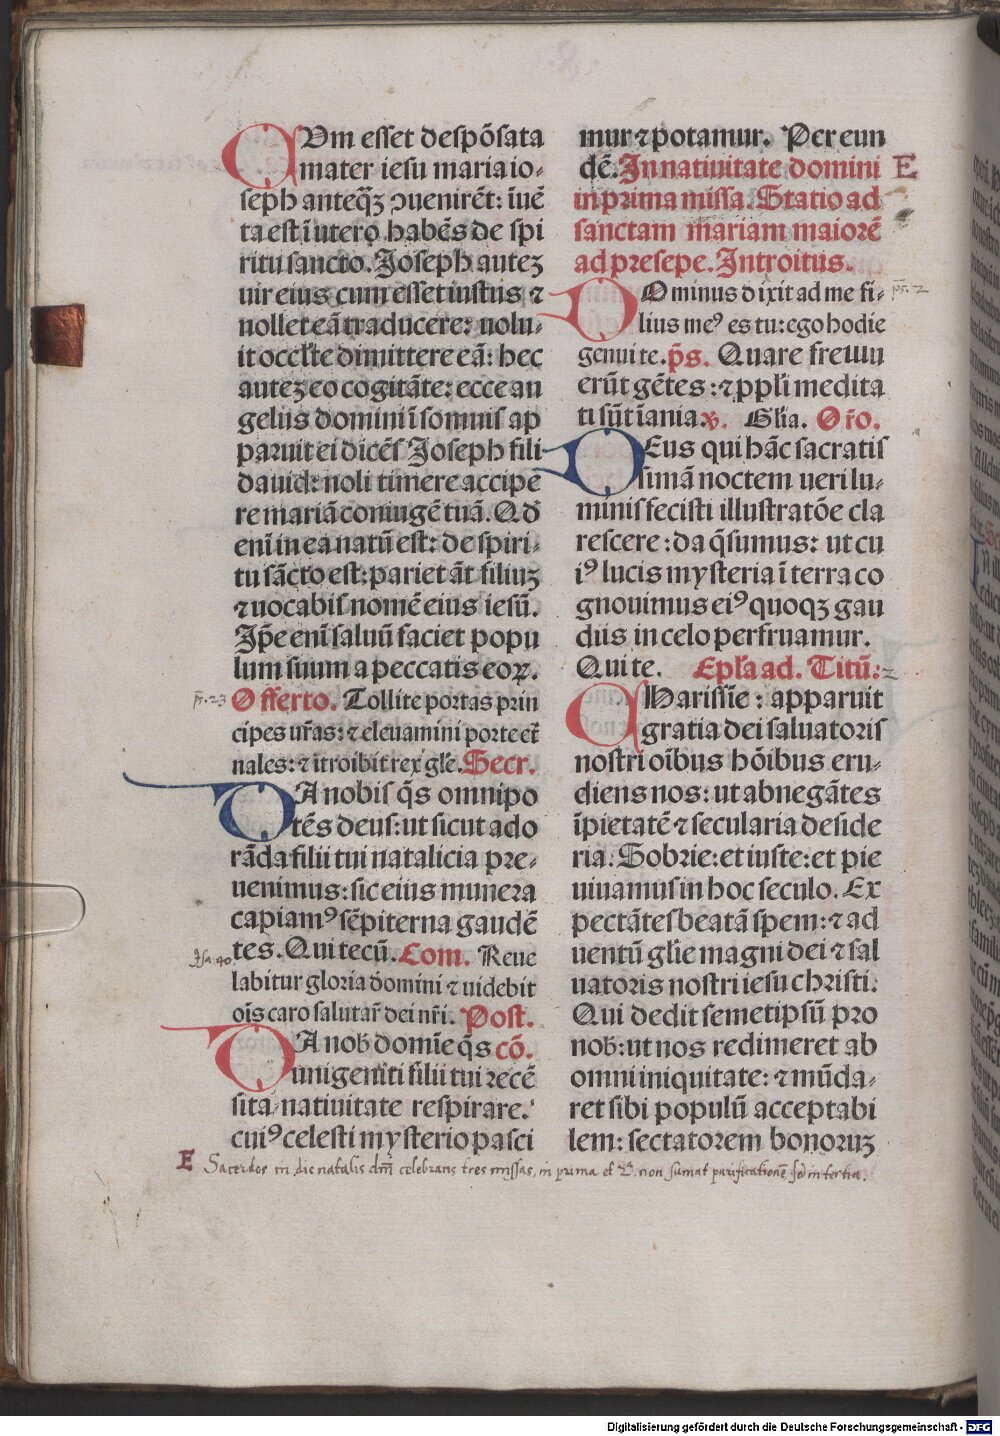 CUm esset despōsata
mater iesu maria io-
seph anteqꝫ ↄuenirēt: iuē
ta est ī utero habēs de spi
ritu sancto. Joseph auteꝫ
uir eius cum esset iustus ⁊
nollet eā traducere: uolu-
it occl'te dimittere eā: hec
auteꝫ eo cogitāte: ecce an
gelus domini ī somnis ap
paruit ei dicēs Joseph fili
dauid: noli timere accipe
re mariā coniugē tuā. Qd̄
eni in ea natū est: de spiri-
tu sācto est: pariet āt filiuꝫ
⁊ uocabis nomē eius iesū.
Jp̄e eni saluū faciet popu
lum suum a peccatis eoꝝ.
p̄s. 23 Offerto. Tollite portas prin
cipes ur̄as: ⁊ eleuamini porte et̄
nales: ⁊ ītroibit rex gl'e. Secr.
DA nobis q̄s omnipo
tēs deus: ut sicut ado
rāda filii tui natalicia pre-
uenimus: sic eius munera
capiamꝰ sēpiterna gaudē
Isa. 40. tes. Qui tecū. Com. Reue
labitur gloria domini ⁊ uidebit
oīs caro salutar̄ dei nr̄i. Post.
DA nob̄ domīe q̄s cō.
unigeniti filii tui recē
sita natiuitate respirare.
cuiꝰ celesti mysterio pasci
mur ⁊ potamur. Per eun
dē. In natiuitate domini E
in prima missa. Statio ad
sanctam mariam maiorē
ad presepe. Introitus.
DOminus dixit ad me fi- ps. 2
lius meꝰ es tu: ego hodie
genui te. p̄s. Quare fremu
erūt gētes: ⁊ ppl'i medita
ti sūt īania. v. Gl'ia. Or̄o.
DEus qui hāc sacratis
simā noctem ueri lu-
minis fecisti illustratōe cla
rescere: da q̄sumus: ut cu
iꝰ lucis mysteria ī terra co
gnouimus eiꝰ quoqꝫ gau
diis in celo perfruamur.
Qui te. Epl'a ad. Titū: 2
CHarissīe: apparuit
gratia dei saluatoris
nostri oībus hōibus eru-
diens nos: ut abnegātes
īpietatē ⁊ secularia deside
ria. Sobrie: et iuste: et pie
uiuamus in hoc seculo. Ex
pectātes beatā spem: ⁊ ad
uentū gl'ie magni dei ⁊ sal
uatoris nostri iesu christi.
Qui dedit semetipsū pro
nob̄: ut nos redimeret ab
omni iniquitate: ⁊ mūda-
ret sibi populū acceptabi
lem: sectatorem bonoruꝫ
E Sacerdos in die natalis dn̄i celebrans tres missas, in prima et 2ª. non sumat purificationē, sed in tertia.
Digitalisierung gefördert durch die Deutsche Forschungsgemeinschaft - DFG